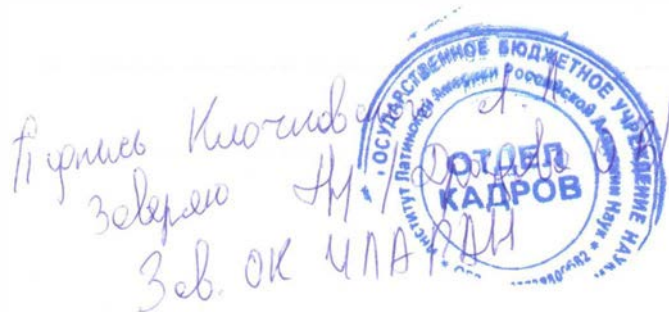 Подпись Клочковского Л.Л.
Заверяю
Зав. ОК ИЛА РАН
ГОСУДАРСТВЕННОЕ БЮДЖЕТНОЕ УЧРЕЖДЕНИЕ НАУК
Институт Латинской Америки Российской Академии Наук *
ОТДЕЛ
КАДРОВ